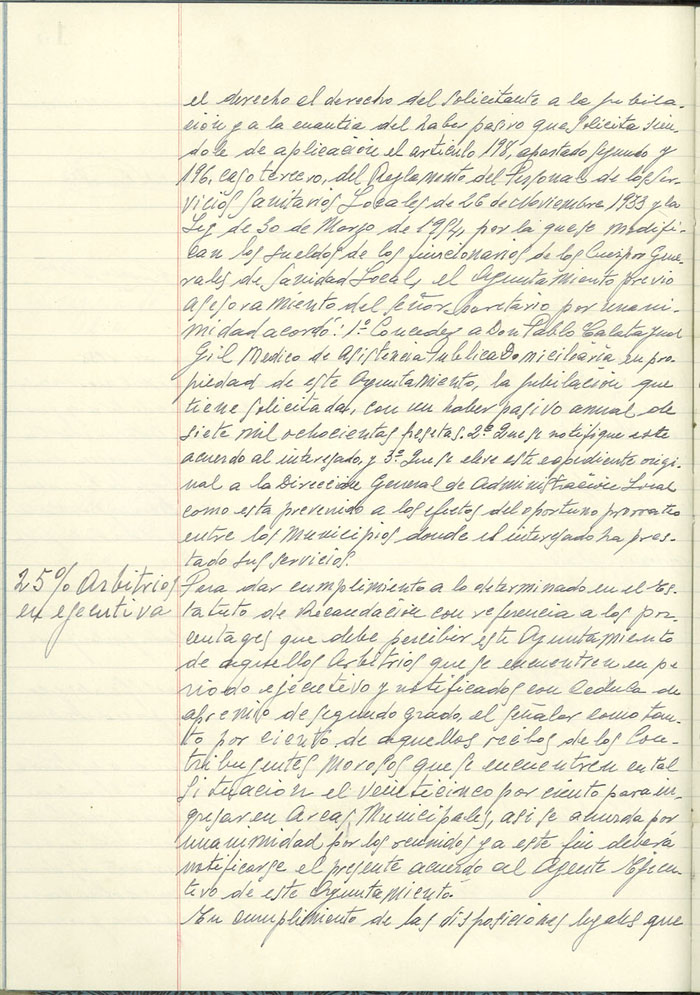 el derecho el derecho del solicitante a la jubila-
ción y a la cuantia del haber pasivo que solicita sien-
dole de aplicación el articulo 198, apartado segundo y
196, caso tercero, del Reglamento del Personal de los Ser-
vicios Sanitarios Locales de 26 de Noviembre 1953 y la
Ley de 30 de Marzo de 1954, por la que se modifi-
can los sueldos de los funcionarios de los Cuerpos Gene-
rales de Sanidad Local, el Ayuntamiento previo
asesoramiento del Señor Secretario por unani-
midad acordó: 1º Conceder a Don Pablo Calatayud
Gil Medico de Asistencia Publica Domiciliaria en pro-
piedad de este Ayuntamiento, la jubilación que
tiene solicitada, con un haber pasivo anual de
siete mil ochocientas pesetas. 2º Que se notifique este
acuerdo al interesado, y 3º Que se eleve este expediente origi-
nal a la Dirección General de Administración Local
como esta prevenido a los efectos del oportuno prorrateo
entre los Municipios donde el interesado ha pres-
tado sus servicios.
25% Arbitrios
en ejecutiva
Para dar cumplimiento a lo determinado en el Es-
tatuto de Recaudación con referencia a los por-
centages que debe percibir este Ayuntamiento
de aquellos Arbitrios que se encuentren en pe-
riodo ejecutivo y notificados con Cedula de
apremio de segundo grado, el señalar como tan-
to por ciento de aquellos recibos de los Con-
tribuyentes Morosos que se encuentren en tal
situación el veinticinco por ciento para in-
gresar en Arcas Municipales, asi se acuerda por
unanimidad por los reunidos y a este fin deberá
notificarse el presente acuerdo al Agente Ejecu-
tivo de este Ayuntamiento.
En cumplimiento de las disposiciones legales que